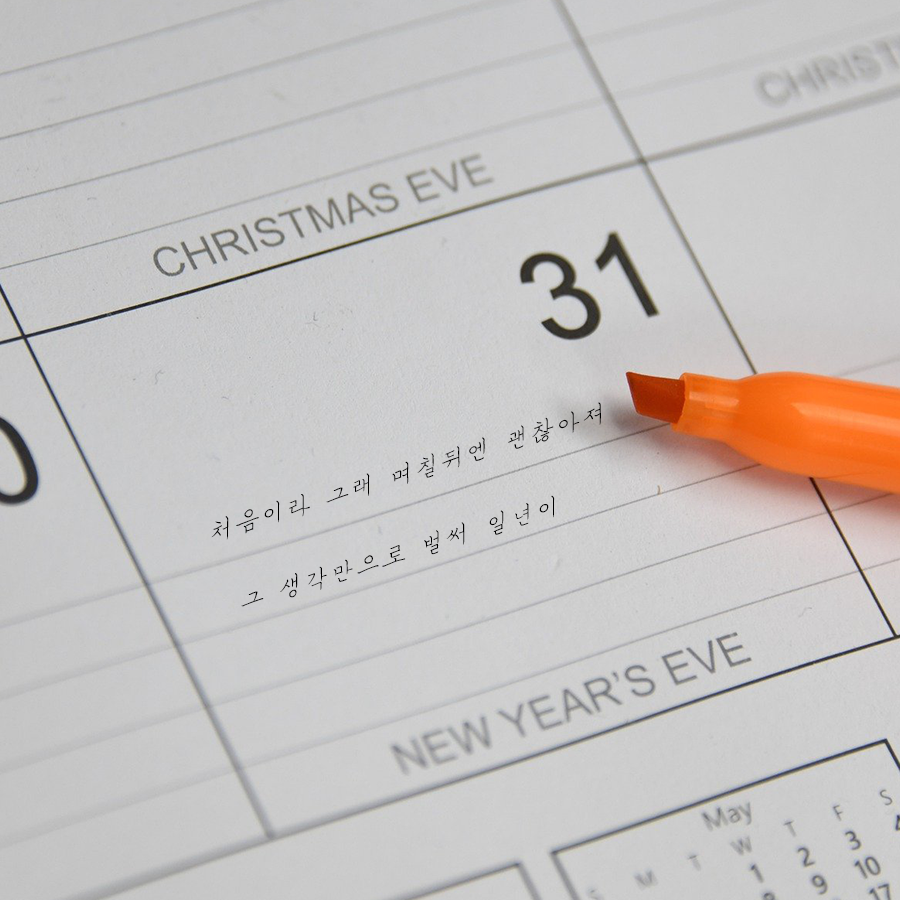 CHRIST
CHRISTMAS EVE
31
0
처음이라 그래 며칠뒤엔 괜찮아져
그 생각만으로 벌써 일년이
NEW YEAR'S EVE
May
S M T W T F S
1 2 3 4
8 9 10
17